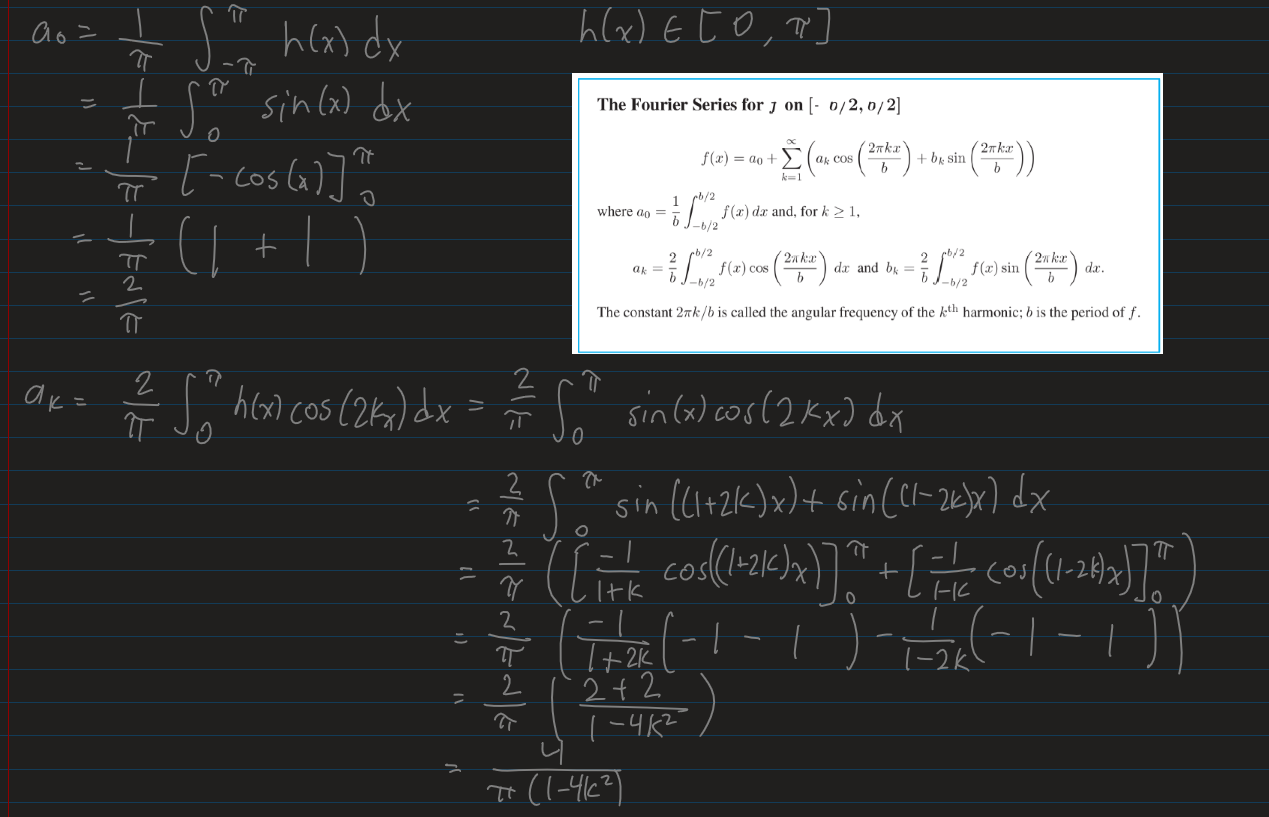 a₀ = 1/π ∫_{-π}^{π} h(x) dx
h(x) ∈ [0, π]
= 1/π ∫_0^π sin(x) dx
= 1/π [-cos(x)]_0^π
= 1/π (1 + 1)
= 2/π
The Fourier Series for ȷ on [- 0/2, 0/2]
f(x) = a₀ + ∑_{k=1}^{∞} (a_k cos(2πkx/b) + b_k sin(2πkx/b))
where a₀ = 1/b ∫_{-b/2}^{b/2} f(x) dx and, for k ≥ 1,
a_k = 2/b ∫_{-b/2}^{b/2} f(x) cos(2πkx/b) dx and b_k = 2/b ∫_{-b/2}^{b/2} f(x) sin(2πkx/b) dx.
The constant 2πk/b is called the angular frequency of the kth harmonic; b is the period of f.
a_k = 2/π ∫_0^π h(x) cos(2kx) dx = 2/π ∫_0^π sin(x) cos(2kx) dx
= 2/π ∫_0^π sin((1+2k)x) + sin((1-2k)x) dx
= 2/π ([-1/(1+k) cos((1+2k)x)]_0^π + [-1/(1-k) cos((1-2k)x)]_0^π)
= 2/π (-1/(1+2k) (-1 - 1) - 1/(1-2k) (-1 - 1))
= 2/π ((2+2)/(1-4k²))
= 4/(π(1-4k²))